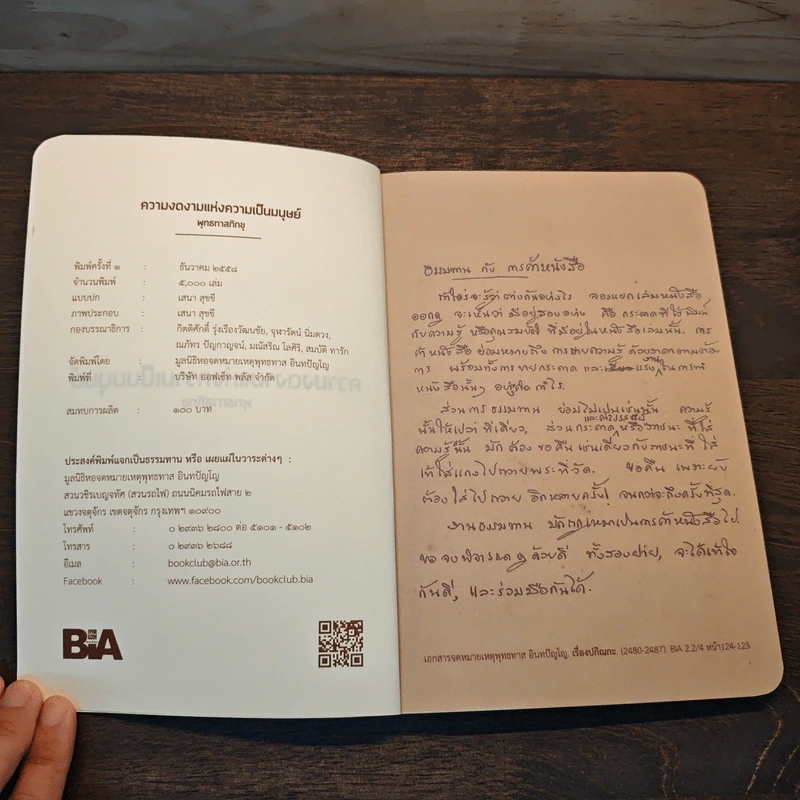 ความงดงามแห่งความเป็นมนุษย์
พุทธทาสภิกขุ
พิมพ์ครั้งที่ ๑ : ธันวาคม ๒๕๕๘
จำนวนพิมพ์ : ๕,๐๐๐ เล่ม
แบบปก : เสนา สุขชี
ภาพประกอบ : เสนา สุขชี
กองบรรณาธิการ : กิตติศักดิ์ รุ่งเรืองวัฒนชัย, จุฬารัตน์ นิ่มดวง,
ณภัทร ปัญกาญจน์, มณัสริณ โลศิริ, สมบัติ ทารัก
จัดพิมพ์โดย : มูลนิธิหอจดหมายเหตุพุทธทาส อินทปัญโญ
พิมพ์ที่ : บริษัท ออฟเซ็ท พลัส จำกัด
สมทบการผลิต : ๑๐๐ บาท
ประสงค์พิมพ์แจกเป็นธรรมทาน หรือ เผยแผ่ในวาระต่างๆ :
มูลนิธิหอจดหมายเหตุพุทธทาส อินทปัญโญ
สวนวชิรเบญจทัศ (สวนรถไฟ) ถนนนิคมรถไฟสาย ๒
แขวงจตุจักร เขตจตุจักร กรุงเทพฯ ๑๐๙๐๐
โทรศัพท์ : ๐ ๒๙๓๖ ๒๘๐๐ ต่อ ๕๑๐๑ - ๕๑๐๒
โทรสาร : ๐ ๒๙๓๖ ๒๖๘๘
อีเมล : bookclub@bia.or.th
Facebook : www.facebook.com/bookclub.bia
BIA
ธรรมทาน กับ การค้าหนังสือ
ถ้าใคร่จะรู้ว่าต่างกันอย่างไร ลองแยกเล่มหนังสือ
ออกดู จะเห็นว่า มีอยู่สองอย่าง คือ กระดาษที่ใช้พิมพ์
กับความรู้ หรือคุณสมบัติ ที่มีอยู่ในหนังสือเล่มนั้น. การ
ค้าหนังสือ ย่อมหมายถึง การขายความรู้ ด้วยราคาตามต้อง
การ พร้อมทั้งการขายกระดาษ และแรงงานในการทำ
หนังสือนั้นๆ อย่างกำไร.
ส่วนการธรรมทาน ย่อมไม่เป็นเช่นนั้น ความรู้
นั้นให้เปล่า ทีเดียว, ส่วนกระดาษ หรือภาชนะ ที่ใส่
ความรู้นั้น มักต้อง ขอคืน เช่นเดียวกับภาชนะที่ใส่
ใส่แกงไปถวายพระที่วัด. ขอคืน เพราะยัง
ต้องใส่ไปถวาย อีกหลายครั้ง จนกว่าจะถึงครั้งที่สุด.
งานธรรมทาน มักถูกเหมาเป็นการค้าหนังสือไป.
ขอจงพิจารณาดูด้วยดี ทั้งสองฝ่าย, จะได้เข้าใจ
กันดี, และร่วมมือกันได้.
เอกสารจดหมายเหตุพุทธทาส อินทปัญโญ. เรื่องปกิณกะ. (2480-2487). BIA 2.2/4 หน้า124-125